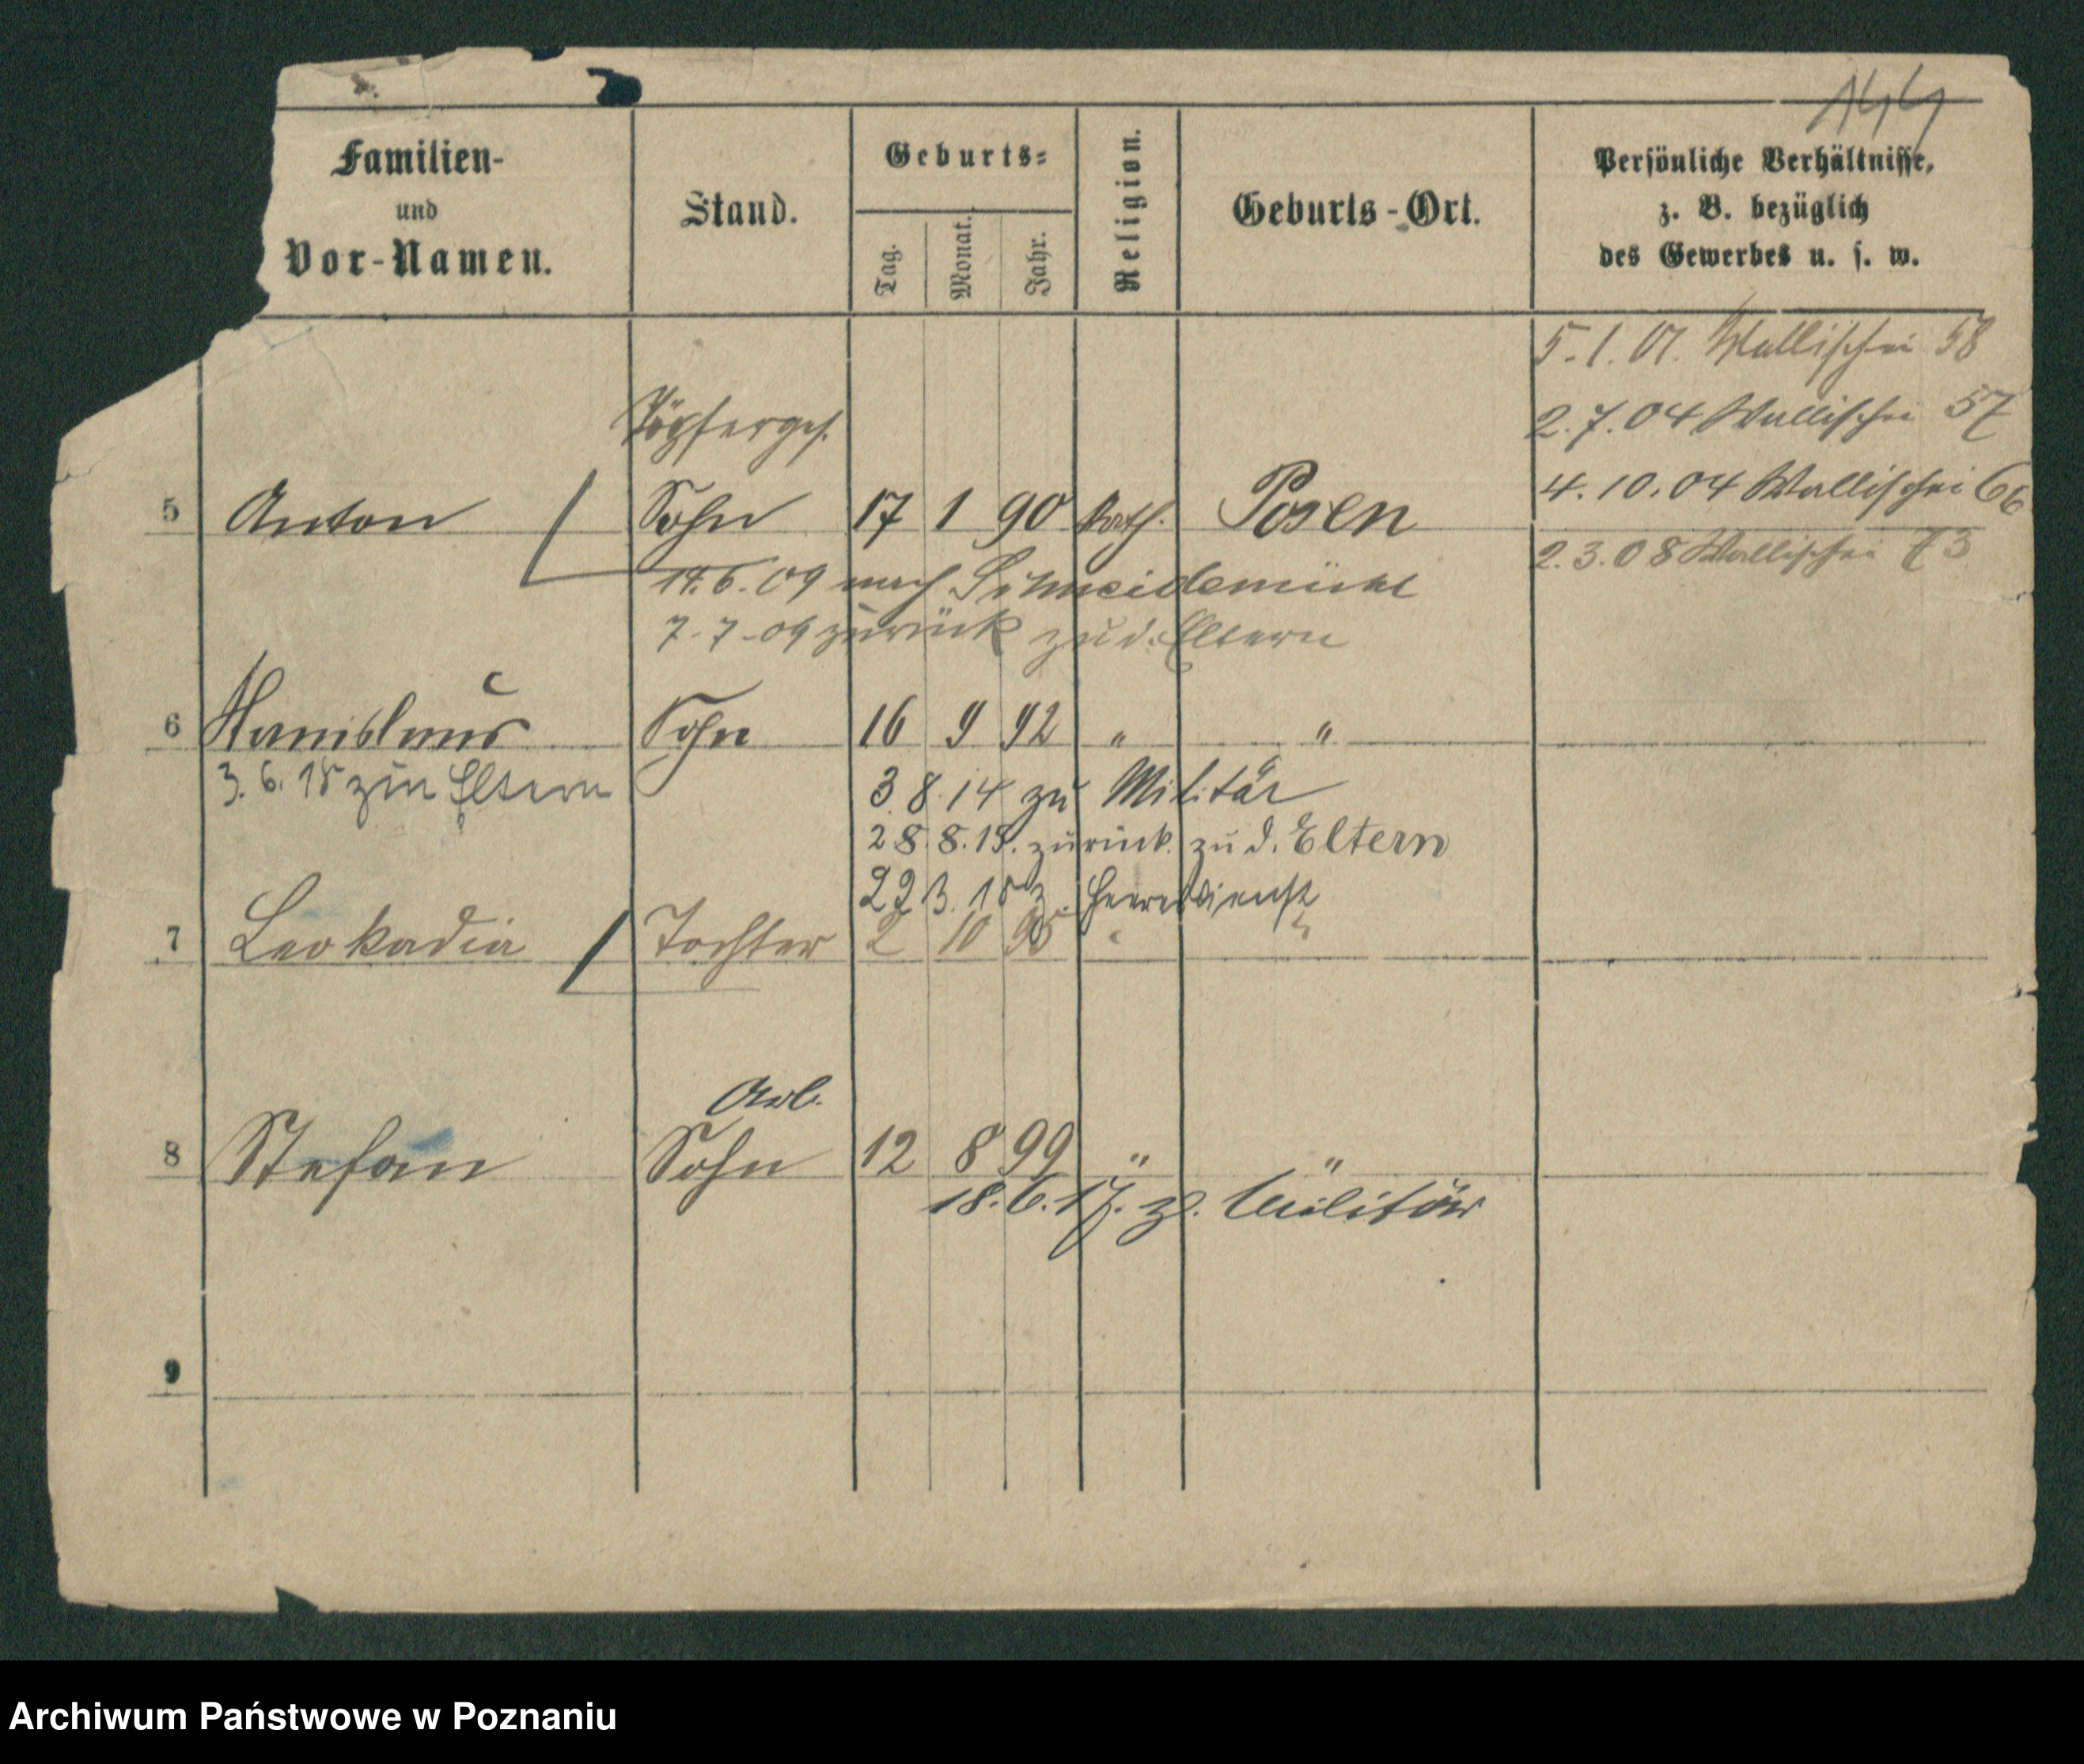 144
Familien-
und
Vor-Namen.
Stand.
Geburts-
Tag.
Monat.
Jahr.
Religion.
Geburts-Ort.
Persönliche Verhältnisse,
z. B. bezüglich
des Gewerbes u. s. w.
5.1.01. Wallischei 58
2.7.04 Wallischei 57
4.10.04 Wallischei 66
2.3.08 Wallischei 73
Töpferges.
5 Anton Sohn 17 1 90 kath. Posen
14.6.09 nach Schneidemühl
7.7.09 zurück zu d. Eltern
6 Stanislaus Sohn 16 9 92 " "
3.6.18 zu Eltern
3.8.14 zu Militär
28.8.15. zurück zu d. Eltern
22 3. 18 z. Heeresdienst
7 Leokadia Tochter 2 10 95 " "
Arb.
8 Stefan Sohn 12 8 99 " "
18.6.17. z. Militär
9
Archiwum Państwowe w Poznaniu